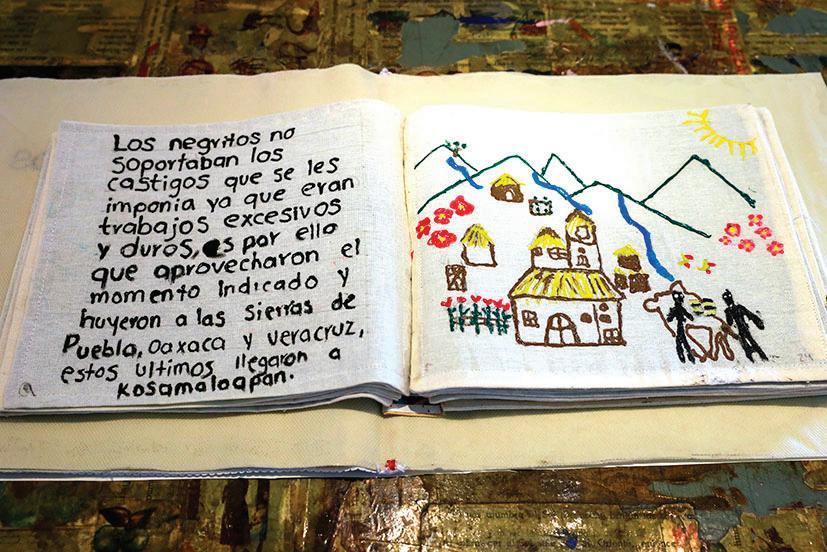 Los negritos no
soportaban los
castigos que se les
imponia ya que eran
trabajos excesivos
y duros, es por ello
que aprovecharon el
momento indicado y
huyeron a las sierras de
Puebla, Oaxaca y veracruz,
estos ultimos llegaron a
Kosamaloapan.
24